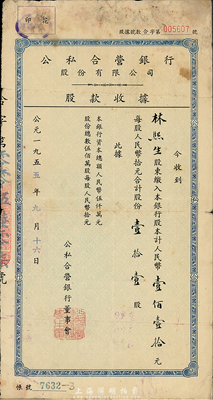 印花
股據號數合字第 005607 號
公私合營銀行
股份有限公司
股款收據
今收到
林熙生 股東繳入本銀行股本計人民幣 壹佰壹拾 元
每股人民幣拾元合計股份 壹拾壹 股
此據
本銀行資本總額人民幣伍仟萬元
股份總數伍佰萬股每股人民幣拾元
公私合營銀行董事會
公元一九五五年九月十六日
帳號 7632-3